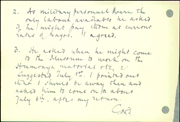 2. As military personnel were the
only labour available he asked
if he might pay them at current
rates of wages. I agreed.
3. He asked when he might come
to the Museum to work on the
material etc. I
suggested July 1st. I pointed out
that I should be away then and
asked him to come on to about
July 8th, after my return.